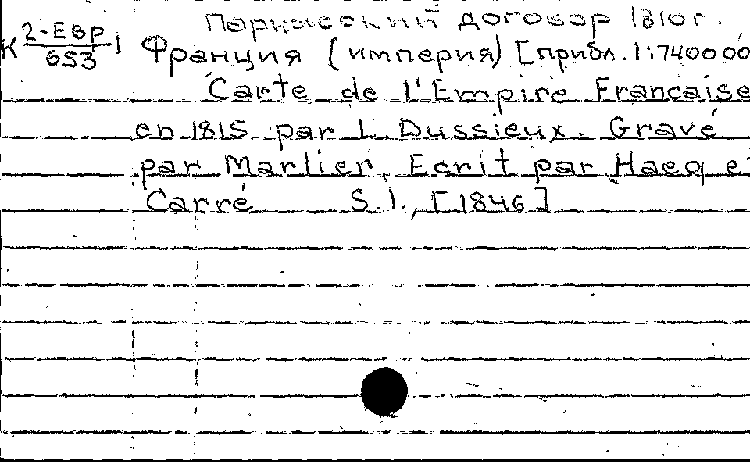 Парижский договор 1810 г.
К 2-ЕВР/653 1 Франция (империя) [прибл. 1:7400000
Carte de l'Empire Française
en 1815 par L. Dussieux. Gravé
par Marlier, Ecrit par Hacq e
Carré S. l., [1846]